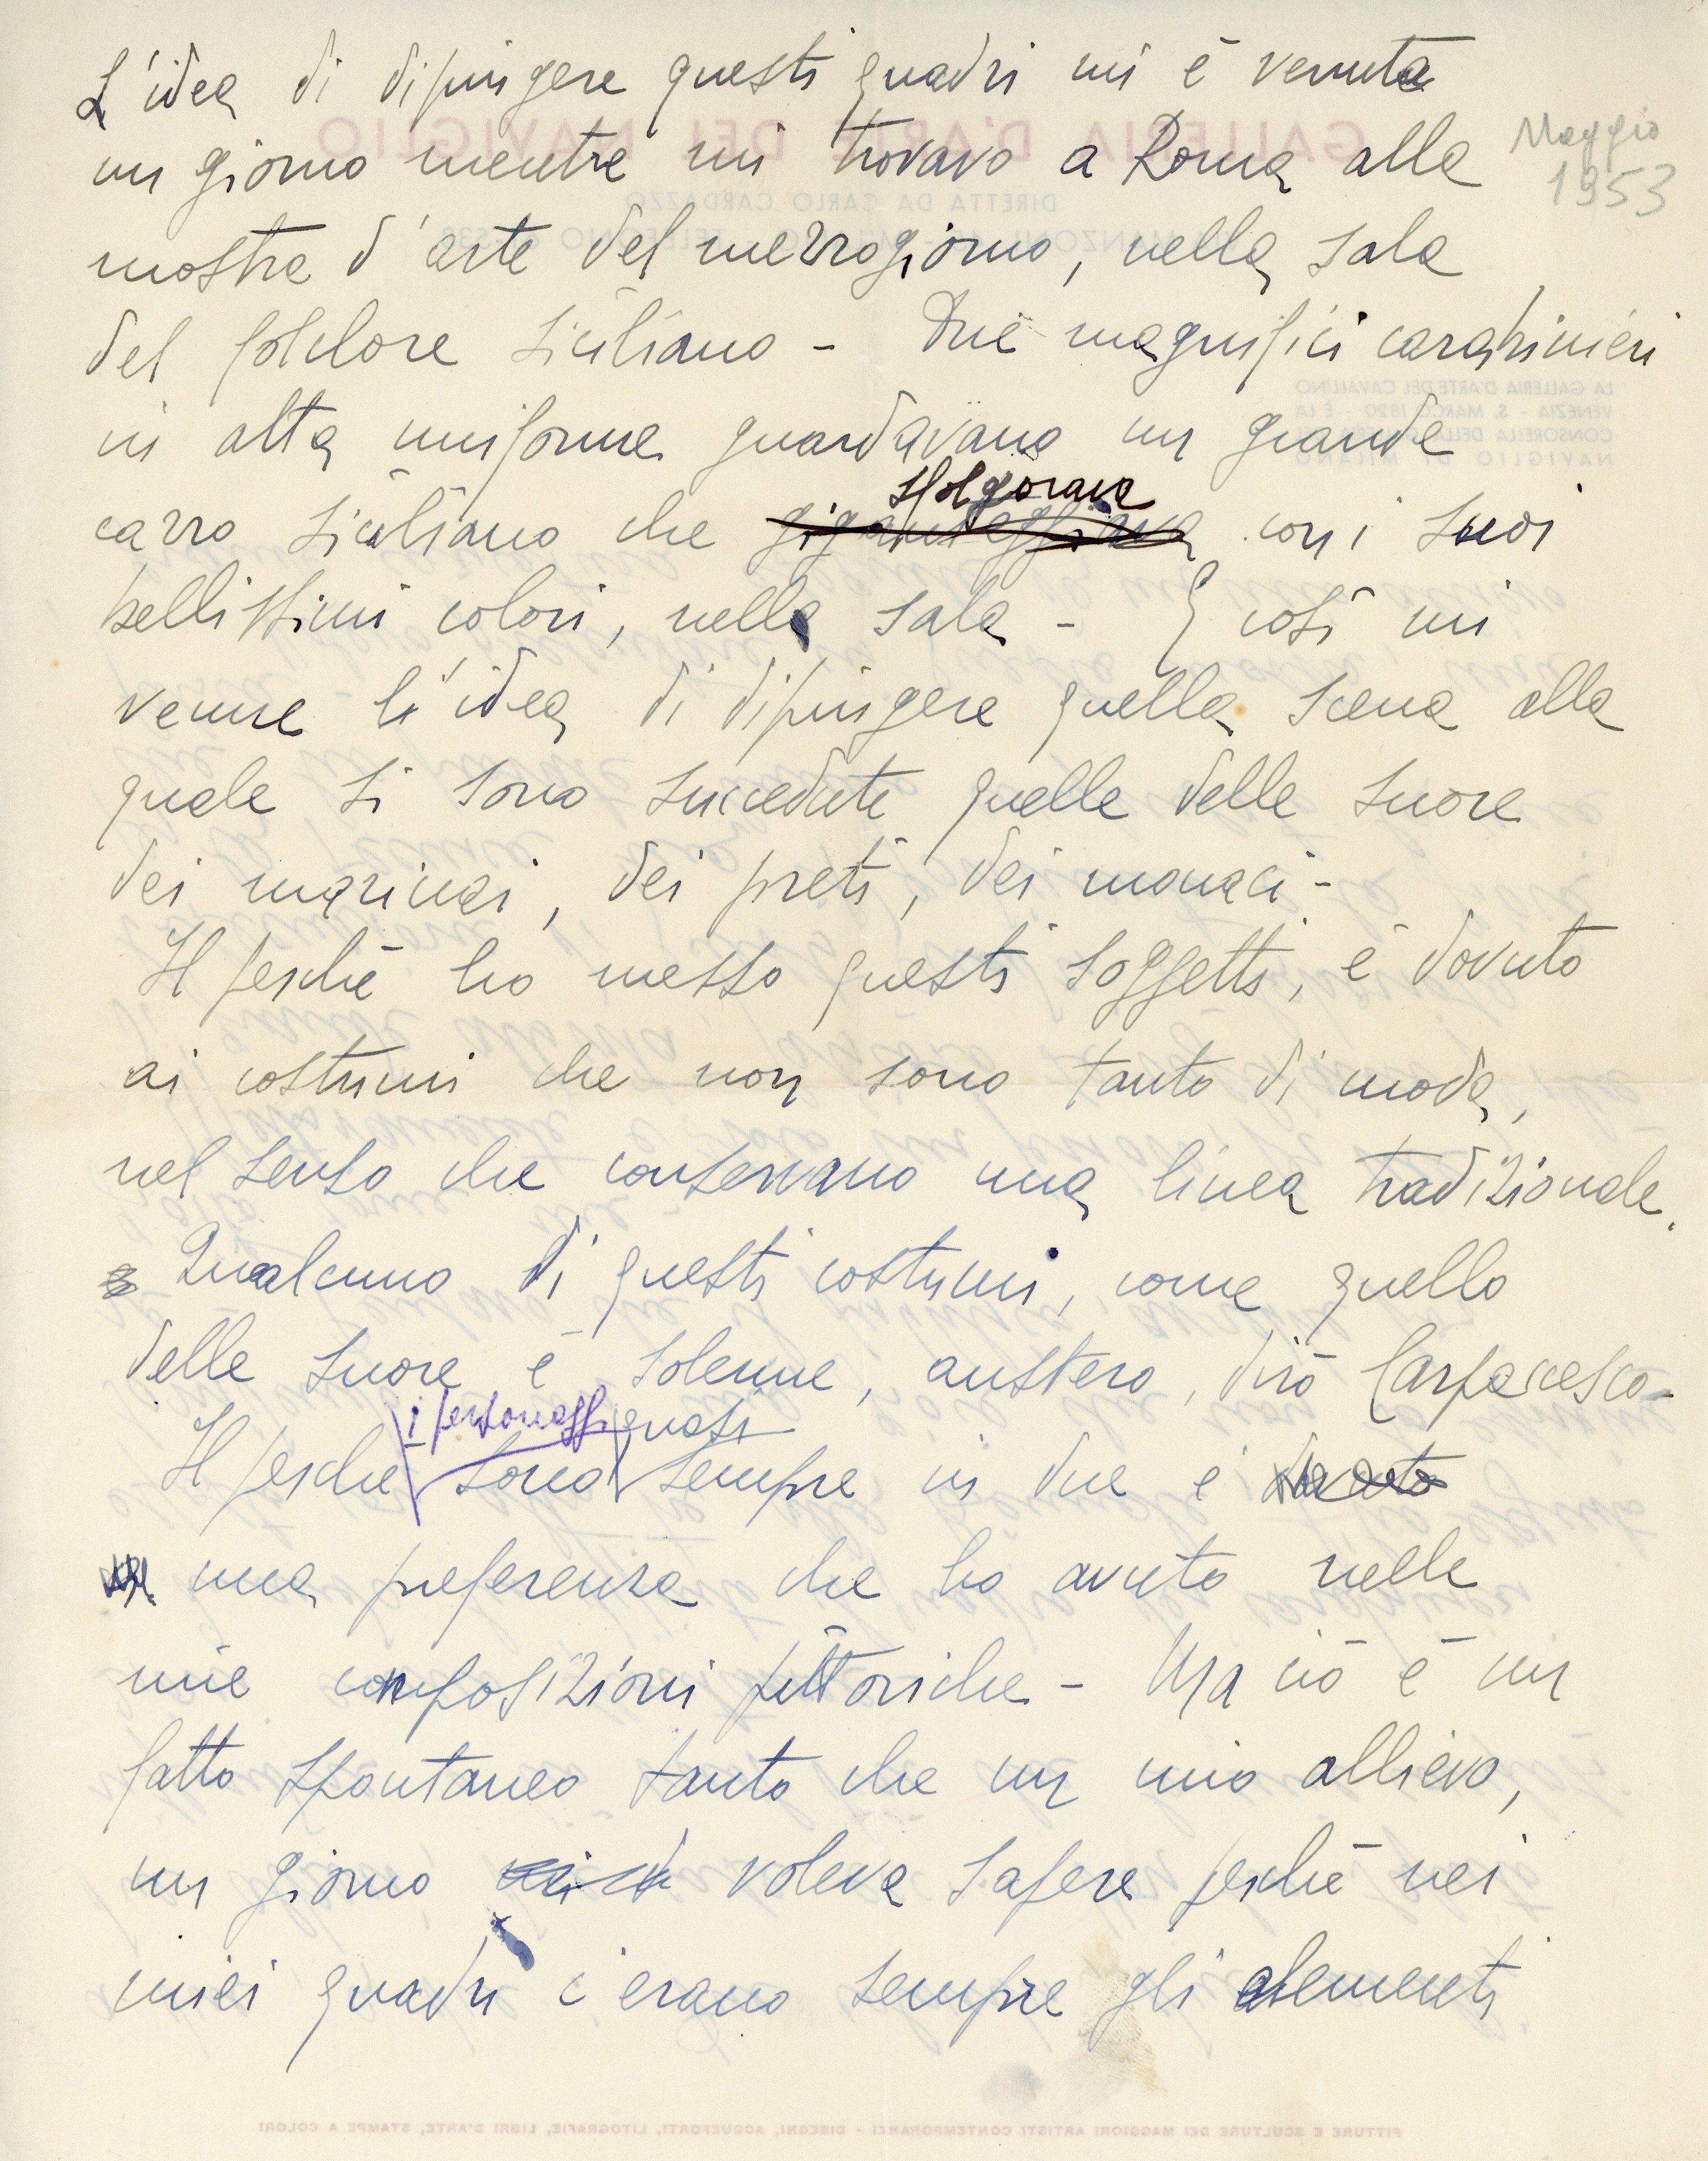 L'idea di dipingere questi quadri mi è venuta
un giorno mentre mi trovavo a Roma alla
Maggio
1953
mostra d'arte del mezzogiorno, nella sala
del folclore siciliano - Due magnifici carabinieri
in alta uniforme guardavano un grande
sfolgorava
carro siciliano che giganteggiava con i suoi
bellissimi colori, nella sala - E così mi
venne l'idea di dipingere quella scena alla
quale si sono succedute quelle delle suore
dei marinai, dei preti, dei monaci -
Il perchè ho messo questi soggetti, è dovuto
ai costumi che non sono tanto di moda,
nel senso che conservano una linea tradizionale.
Qualcuno di questi costumi, come quello
delle suore è solenne, austero, dirò Carpaccesco -
i personaggi quasi
Il perchè sono sempre in due è dovuto
una preferenza che ho avuto nelle
mie composizioni pittoriche - Ma ciò è un
fatto spontaneo tanto che un mio allievo,
un giorno voleva sapere perchè nei
miei quadri c'erano sempre gli elementi
GALLERIA D'ARTE DEL NAVIGLIO
DIRETTA DA CARLO CARDAZZO
LA GALLERIA D'ARTE DEL CAVALLINO
VENEZIA - S. MARCO 1820 - È LA
CONSORELLA DELLA GALLERIA DEL
NAVIGLIO DI MILANO
PITTURE E SCULTURE DEI MAGGIORI ARTISTI CONTEMPORANEI - DISEGNI, ACQUEFORTI, LITOGRAFIE, LIBRI D'ARTE, STAMPE A COLORI